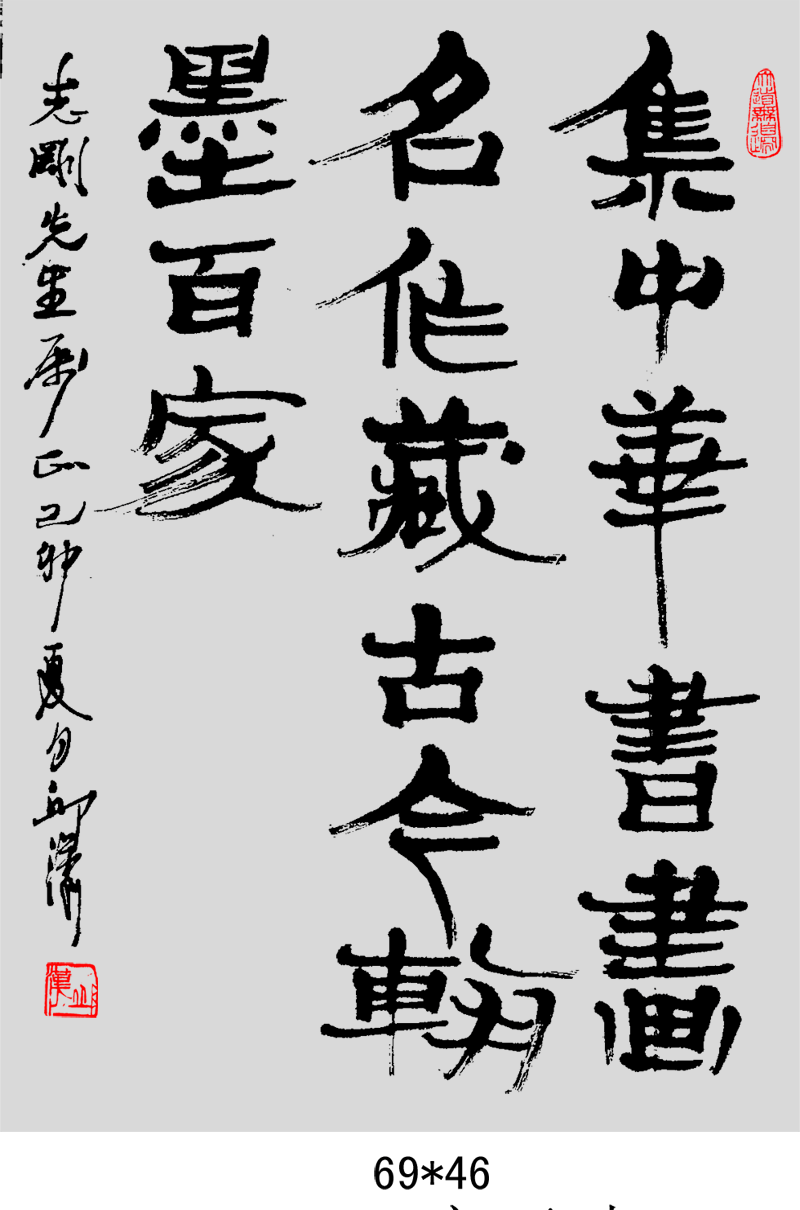 集中華書畫
名作藏古今翰
墨百家
志剛先生属正己卯夏月邱
69*46